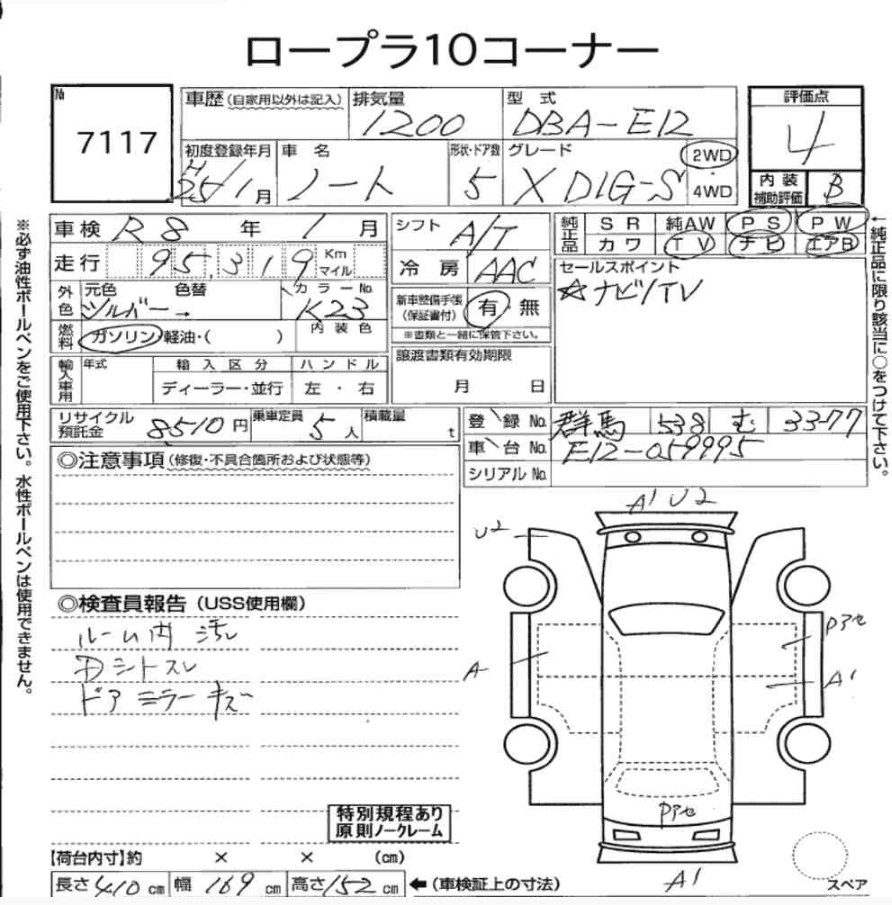 ロープラ10コーナー
№ 7117
車歴(自家用以外は記入) 排気量 1200 型式 DBA-E12
初度登録年月 H25/1月 車名 ノート 形状・ドア数 5 グレード X DIG-S 2WD 4WD
評価点 4
内装補助評価 B
車検 R8年 1月
走行 95,319 Km マイル
シフト A/T
冷房 AAC
純正品 SR 純AW PS PW
カワ TV ナビ エアB
外色 元色 シルバー 色替 → カラーNo. K23
燃料 ガソリン・軽油・( ) 内装色
新車整備手帳(保証書付) 有・無
※書類と一緒に保管下さい。
セールスポイント
☆ナビ/TV
輸入車用 年式 輸入区分 ハンドル
ディーラー・並行 左・右
譲渡書類有効期限
月 日
リサイクル預託金 8510円 乗車定員 5人 積載量 t
登録No. 群馬 538 む 3377
車台No. E12-059995
シリアルNo.
◎注意事項(修復・不具合箇所および状態等)
◎検査員報告(USS使用欄)
ルーム内 汚レ
Dシトスレ
ドアミラー キズ
特別規程あり
原則ノークレーム
【荷台内寸】約 × × (cm)
長さ 410 cm 幅 169 cm 高さ 152 cm ←(車検証上の寸法)
A1 U2
U2
Pアセ
A
A1
Pアセ
A1
スペア
※必ず油性ボールペンをご使用下さい。水性ボールペンは使用できません。
←純正品に限り該当に○をつけて下さい。